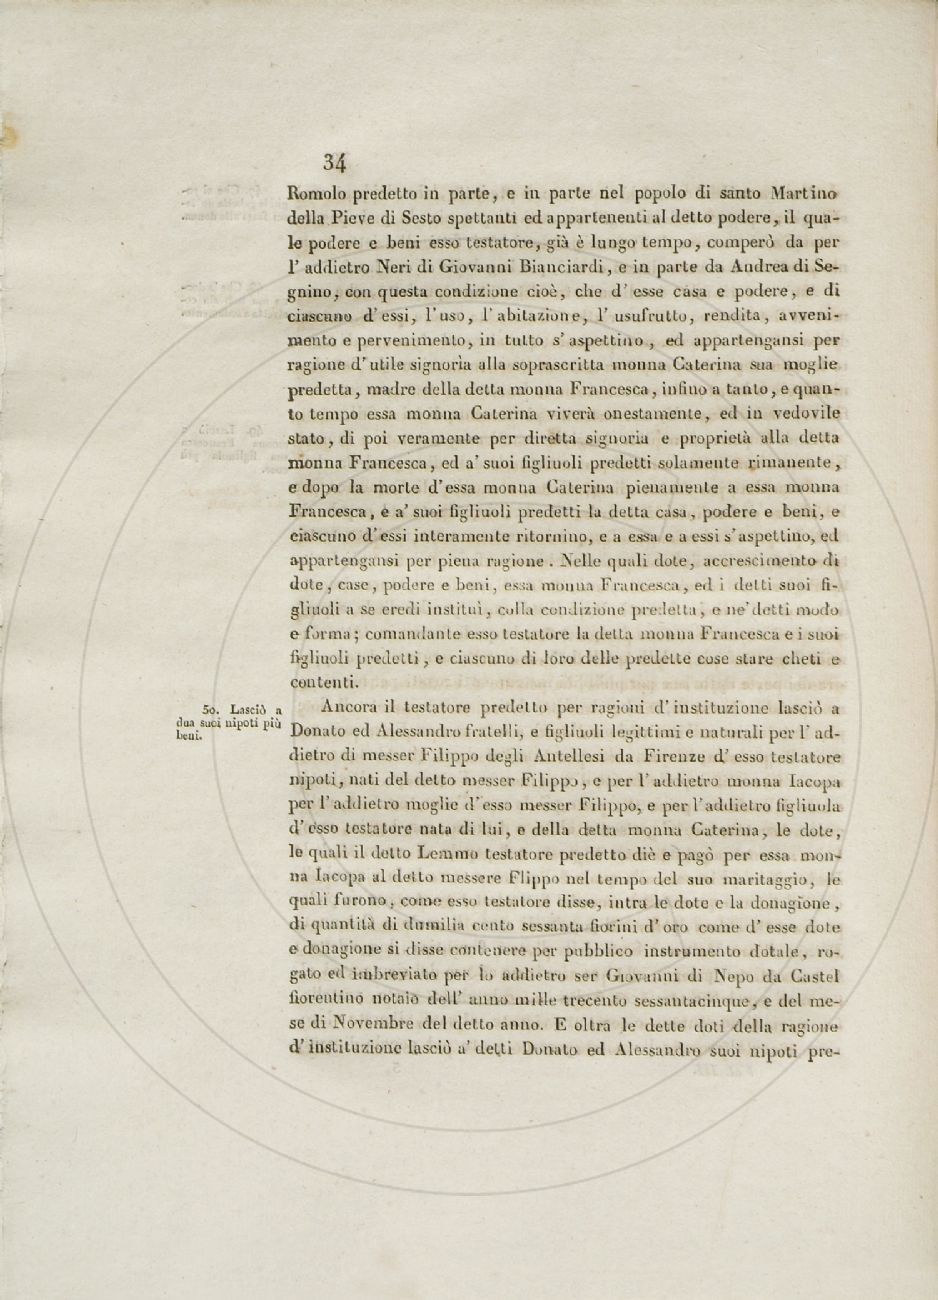 34
Romolo predetto in parte, e in parte nel popolo di santo Martino
della Pieve di Sesto spettanti ed appartenenti al detto podere, il qua-
le podere e beni esso testatore, già è lungo tempo, comperò da per
l' addietro Neri di Giovanni Bianciardi, e in parte da Andrea di Se-
gnino, con questa condizione cioè, che d' esse casa e podere, e di
ciascuno d' essi, l' uso, l' abitazione, l' usufrutto, rendita, avveni-
mento e pervenimento, in tutto s' aspettino, ed appartengansi per
ragione d' utile signorìa alla soprascritta monna Caterina sua moglie
predetta, madre della detta monna Francesca, infino a tanto, e quan-
to tempo essa monna Caterina viverà onestamente, ed in vedovile
stato, di poi veramente per diretta signoria e proprietà alla detta
monna Francesca, ed a' suoi figliuoli predetti solamente rimanente,
e dopo la morte d' essa monna Caterina pienamente a essa monna
Francesca, e a' suoi figliuoli predetti la detta casa, podere e beni, e
ciascuno d' essi interamente ritornino, e a essa e a essi s' aspettino, ed
appartengansi per piena ragione. Nelle quali dote, accrescimento di
dote, case, podere e beni, essa monna Francesca, ed i detti suoi fi-
gliuoli a se eredi instituì, colla condizione predetta, e ne' detti modo
e forma; comandante esso testatore la detta monna Francesca e i suoi
figliuoli predetti, e ciascuno di loro delle predette cose stare cheti e
contenti.
50. Lasciò a
dua suoi nipoti più
beni.
Ancora il testatore predetto per ragioni d' instituzione lasciò a
Donato ed Alessandro fratelli, e figliuoli legittimi e naturali per l' ad-
dietro di messer Filippo degli Antellesi da Firenze d' esso testatore
nipoti, nati del detto messer Filippo, e per l' addietro monna Iacopa
per l' addietro moglie d' esso messer Filippo, e per l' addietro figliuola
d' esso testatore nata di lui, e della detta monna Caterina, le dote,
le quali il detto Lemmo testatore predetto diè e pagò per essa mon-
na Iacopa al detto messere Flippo nel tempo del suo maritaggio, le
quali furono, come esso testatore disse, intra le dote e la donagione,
di quantità di dumilia cento sessanta fiorini d' oro come d' esse dote
e donagione si disse contenere per pubblico instrumento dotale, ro-
gato ed imbreviato per lo addietro ser Giovanni di Nepo da Castel
fiorentino notaio dell' anno mille trecento sessantacinque, e del me-
se di Novembre del detto anno. E oltra le dette doti della ragione
d' instituzione lasciò a' detti Donato ed Alessandro suoi nipoti pre-